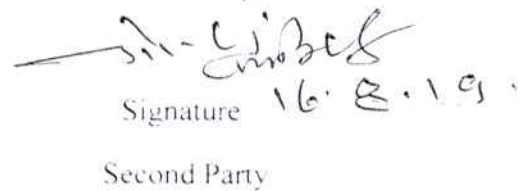 Signature 16.8.19.
Second Party